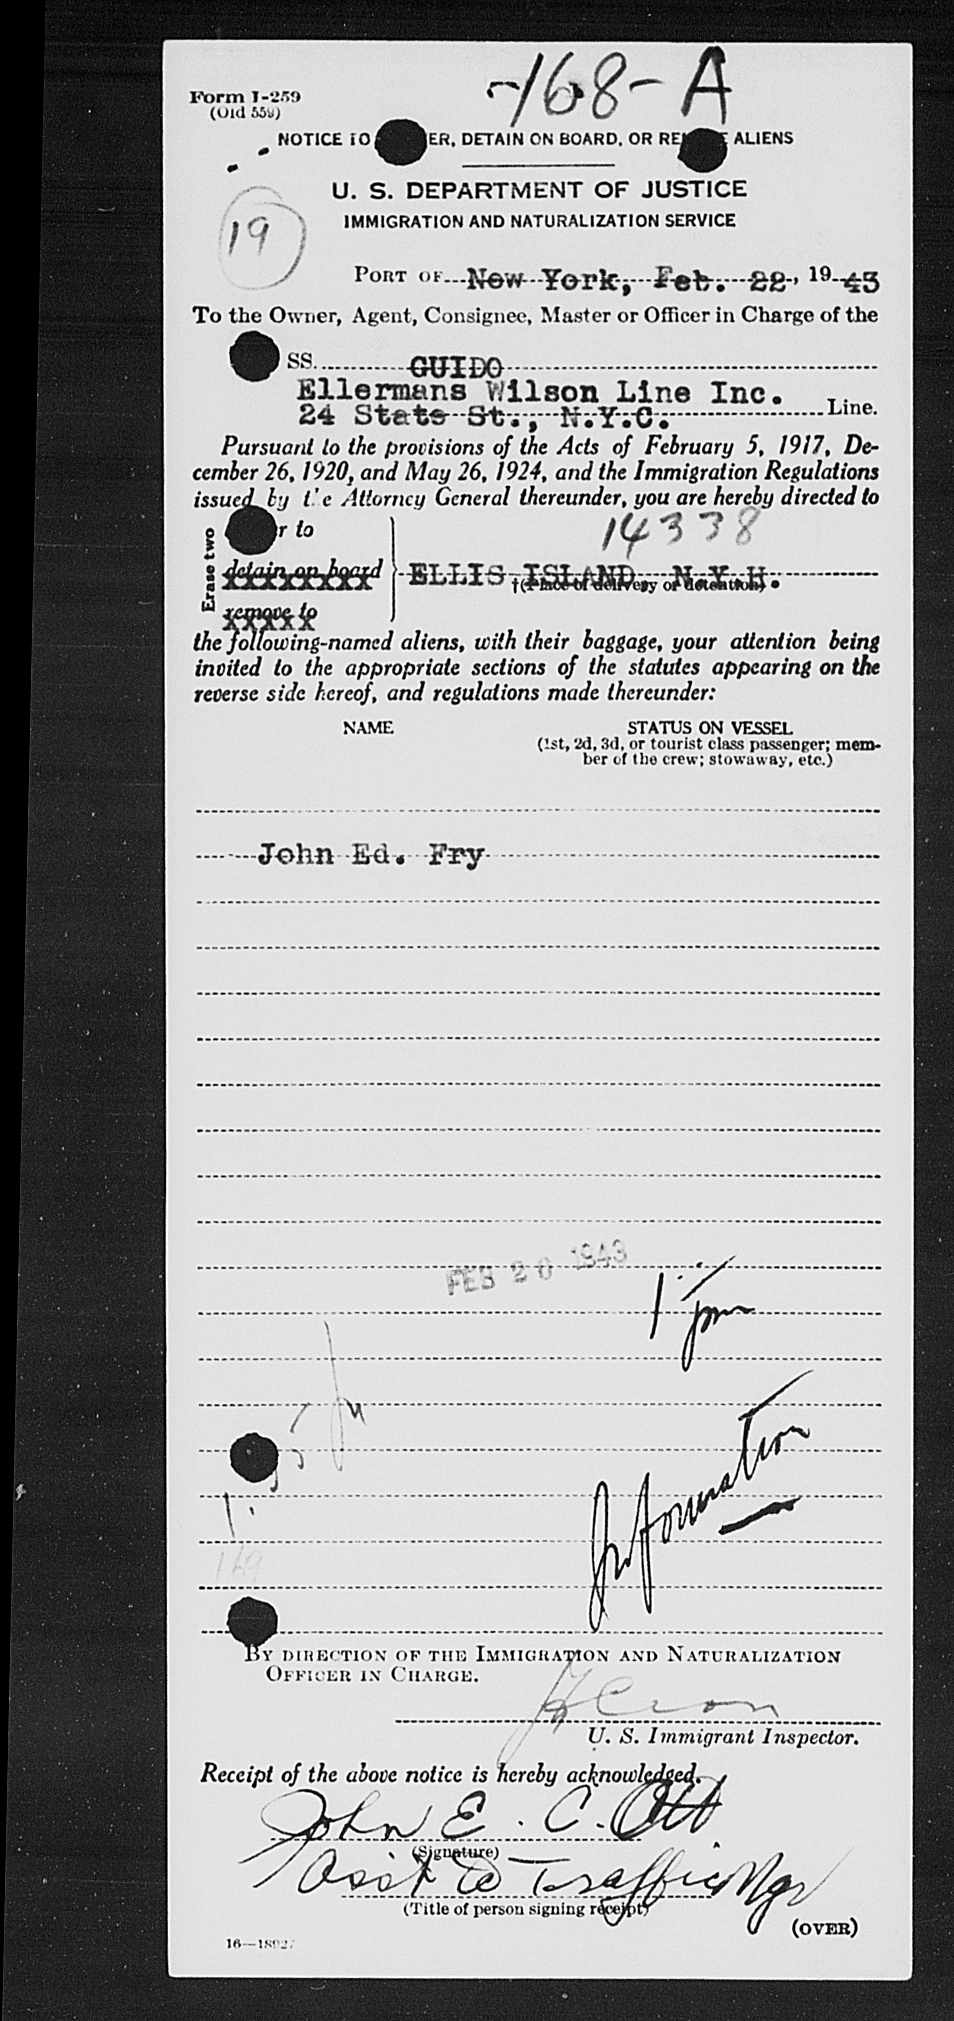 -168-A
Form I-259
(Old 559)
NOTICE TO ER, DETAIN ON BOARD, OR RE ALIENS
U. S. DEPARTMENT OF JUSTICE
IMMIGRATION AND NATURALIZATION SERVICE
19
PORT OF New York, Feb. 22, 1943
To the Owner, Agent, Consignee, Master or Officer in Charge of the
SS. GUIDO
Ellermans Wilson Line Inc.
24 State St., N.Y.C. Line.
Pursuant to the provisions of the Acts of February 5, 1917, De-
cember 26, 1920, and May 26, 1924, and the Immigration Regulations
issued by the Attorney General thereunder, you are hereby directed to
14338
Erase two
r to
detain on board
ELLIS ISLAND, N.Y.H.
†(Place of delivery or detention)
remove to
the following-named aliens, with their baggage, your attention being
invited to the appropriate sections of the statutes appearing on the
reverse side hereof, and regulations made thereunder:
NAME STATUS ON VESSEL
(1st, 2d, 3d, or tourist class passenger; mem-
ber of the crew; stowaway, etc.)
John Ed. Fry
FEB 26 1943
Information
169
BY DIRECTION OF THE IMMIGRATION AND NATURALIZATION
OFFICER IN CHARGE.
U. S. Immigrant Inspector.
Receipt of the above notice is hereby acknowledged.
John E. C. Ott
(Signature)
Asst to Traffic Mgr
(Title of person signing receipt)
(OVER)
16—18927